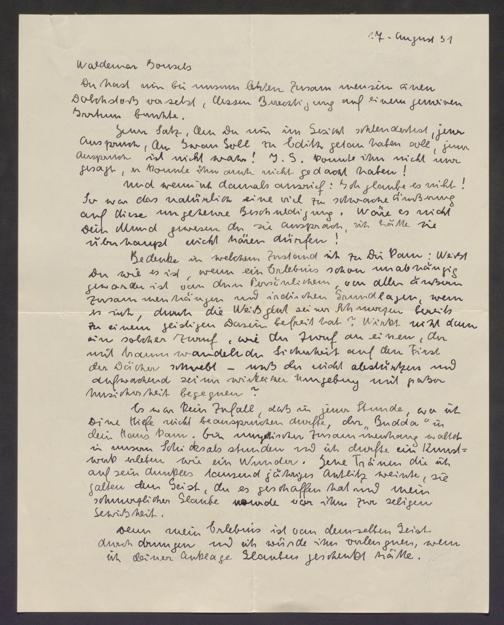 17. August 31
Waldemar Bonsels
Du hast mir bei unserm letzten Zusammensein einen
Dolchstoss versetzt, dessen Berechtigung auf einem gemeinen
Irrtum beruhte.
Jener Satz, den Du mir ins Gesicht schleudertest, jener
Ausspruch, den Iwan Goll zu Edith getan haben soll, jener
Ausspruch ist nicht wahr! I. G. konnte ihn nicht nur
gesagt, er konnte ihn auch nicht gedacht haben!
Und wenn ich damals ausrief: Ich glaube es nicht!
So war das natürlich eine viel zu schwache Äusserung
auf diese ungeheure Beschuldigung. Wäre es nicht
Dein Mund gewesen der sie aussprach, ich hätte sie
überhaupt nicht hören dürfen!
Bedenke in welchem Zustand ich zu Dir kam: Weisst
Du wie es ist, wenn ein Erlebnis schon unabhängig
geworden ist von dem Persönlichen, von allen äussern
Zusammenhängen und irdischen Grundlagen, wenn
es sich, durch die Weißglut seiner Schmerzen bereits
zu einem geistigen Dasein befreit hat? Wirkt nicht dann
ein solcher Zuruf, wie der Zuruf an einen, der
mit traumwandelnder Sicherheit auf dem First
der Dächer schwebt – muß der nicht abstürzen und
aufwachend seiner wirklichen Umgebung mit großer
Unsicherheit begegnen?
Es war kein Zufall, daß in jener Stunde, wo ich
Deine Hilfe nicht beanspruchen durfte, der "Budda" in
dein Haus kam. Ein mystischer Zusammenhang waltet
in unsern Schicksalsstunden und ich durfte ein Kunst=
werk erleben wie ein Wunder. Jene Tränen die ich
auf sein dunkles tausendjähriges Antlitz weinte, sie
galten dem Geist, der es geschaffen hat und mein
schmerzlicher Glaube wurde vor ihm zur seligen
Gewißheit.
Denn mein Erlebnis ist von demselben Geist
durchdrungen und ich würde ihn verleugnen, wenn
ich deiner Anklage Glauben geschenkt hätte.